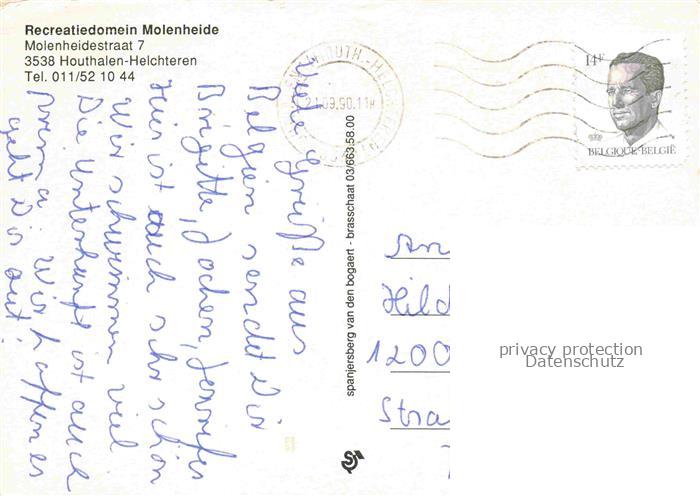 Recreatiedomein Molenheide
Molenheidestraat 7
3538 Houthalen-Helchteren
Tel. 011/52 10 44
Viele Grüße aus
Belgien sendet Dir
Brigitte, Jochen, Jennifer
Hier ist auch sehr schön
Wir schwimmen viel
Die Unterkunft ist auch
prima Wir hoffen es
geht Dir gut!
spanjersberg van den bogaert - brasschaat 03/663.58.00
21.09.90.11H
14F
BELGIQUE·BELGIË
An
Hild
1200
Stra
privacy protection
Datenschutz